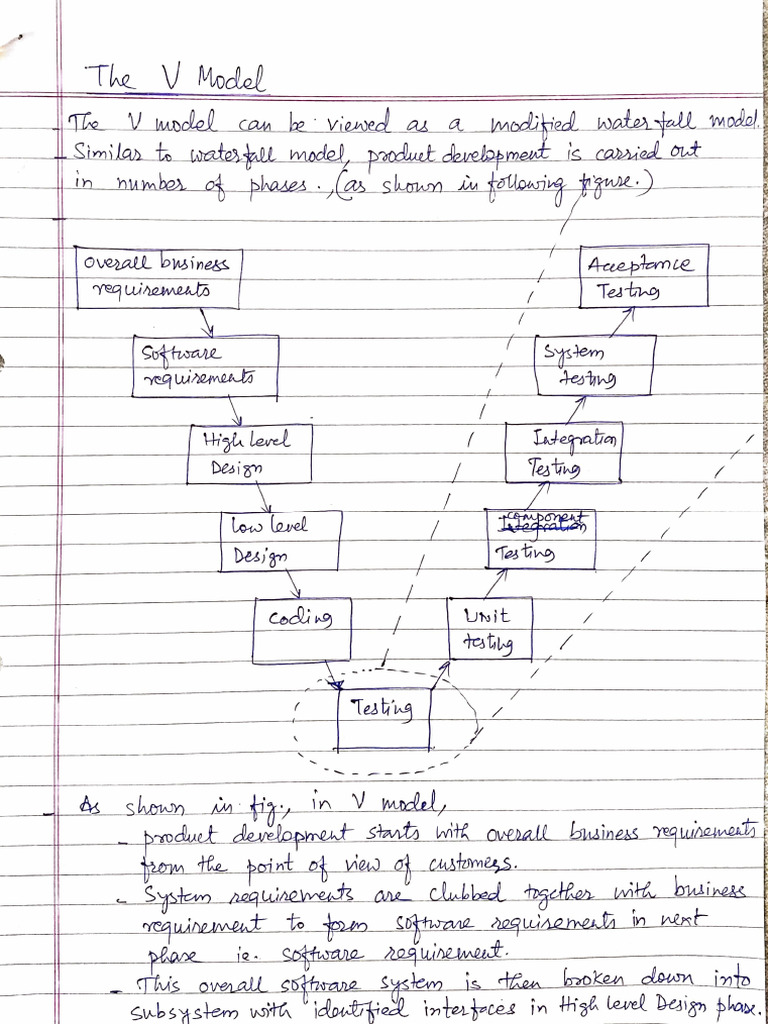 The V Model
The V model can be viewed as a modified waterfall model.
Similar to waterfall model, product development is carried out
in number of phases., (as shown in following figure.)
Overall business
requirements
Acceptance
Testing
Software
requirements
System
testing
High level
Design
Integration
Testing
Low level
Design
component
Integration
Testing
Coding
Unit
testing
Testing
As shown in fig., in V model,
- product development starts with overall business requirements
from the point of view of customers.
- System requirements are clubbed together with business
requirement to form software requirements in next
phase ie. software requirement.
- This overall software system is then broken down into
subsystem with identified interfaces in High level Design phase.